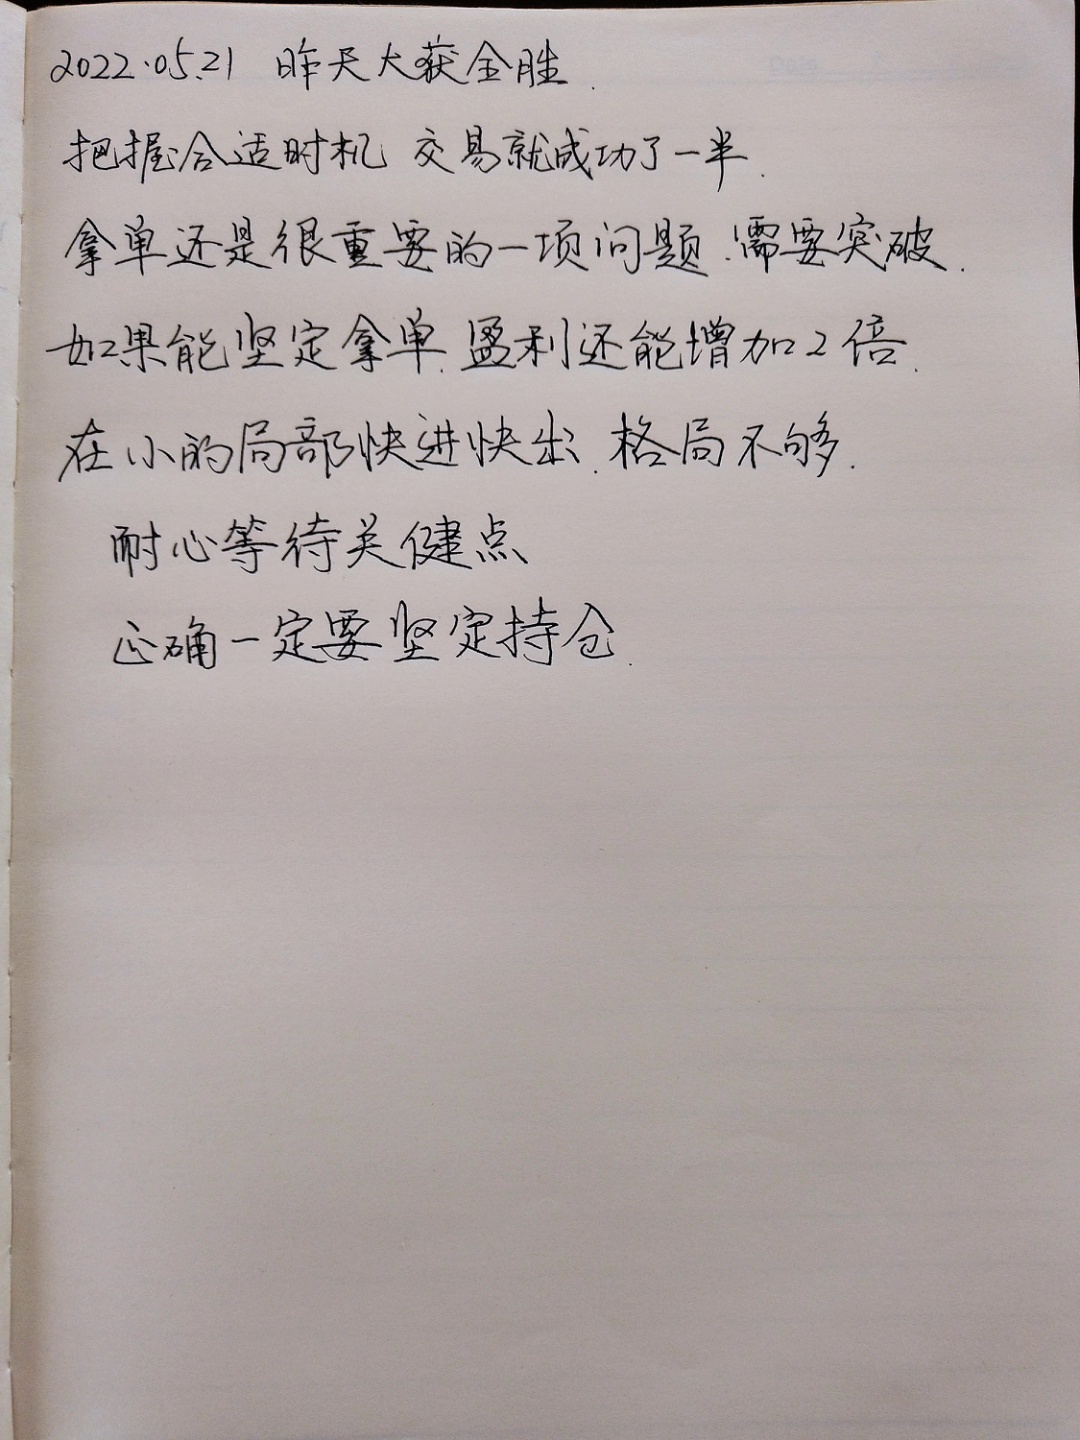 2022.05.21 昨天大获全胜.
把握合适时机 交易就成功了一半.
拿单还是很重要的一项问题.需要突破.
如果能坚定拿单.盈利还能增加2倍.
在小的局部快进快出.格局不够.
耐心等待关健点
正确一定要坚定持仓.